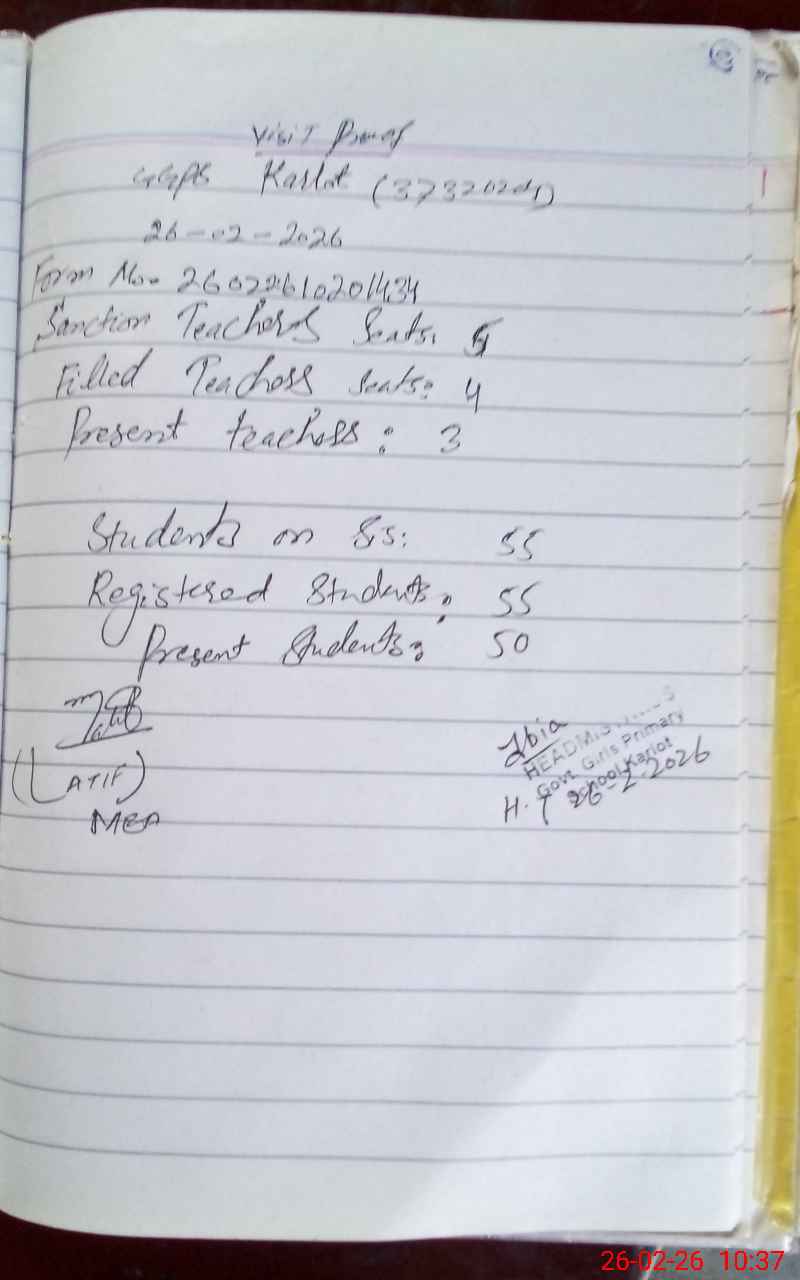 Visit Proof
GGPS Karlot (37320201)
26-02-2026
Form No. 26022610201434
Sanction Teachers Seats: 5
Filled Teachers seats: 4
Present teachers: 3
Students on SIS: 55
Registered Students: 55
Present Students: 50
(LATIF)
MEA
HEADMISTRESS
Govt Girls Primary
School Karlot
H.T 26-2-2026
26-02-26 10:37